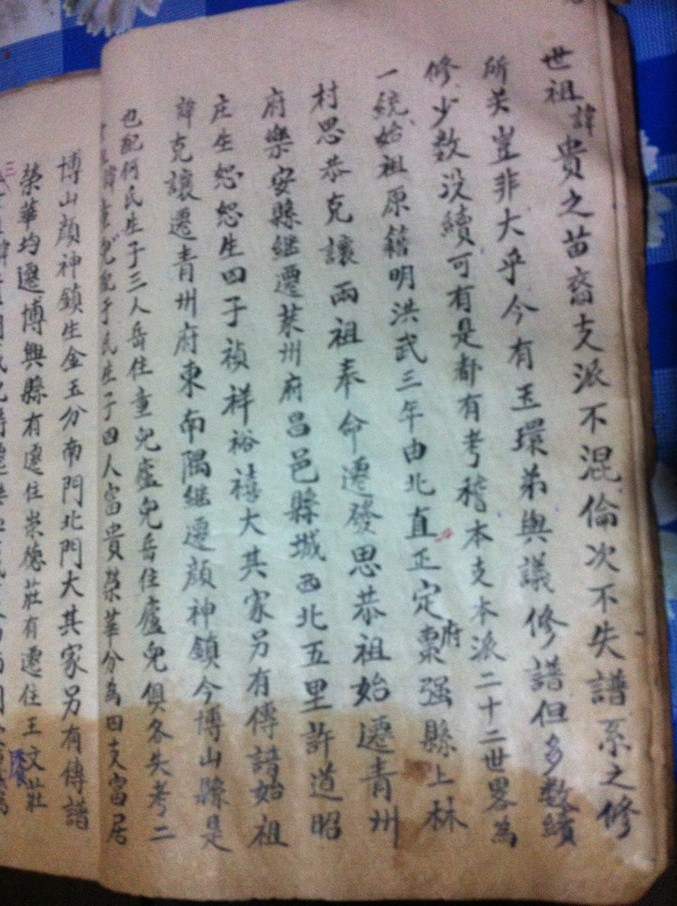 世祖諱貴之苗裔支派不混倫次不失譜系之修
所关豈非大乎今有玉環弟與議修譜但多数續
修少数没續可有是都有考稽本支本派二十二世畧為
一統始祖原籍明洪武三年由北直正定府棗强縣上林
村思恭克讓兩祖奉命遷發思恭祖始遷青州
府樂安縣继遷萊州府昌邑縣城西北五里許道昭
庄生恕恕生四子禎祥裕禧大其家另有傳譜始祖
諱克讓遷青州府東南隅继遷顔神鎮今博山縣是
也配何氏生子三人岳住童兒廬兒岳住廬兒俱各失考二
世祖諱童兒配于氏生子四人富貴榮華分為四支富居
博山顔神鎮生金玉分南門北門大其家另有傳譜
榮華均遷博興縣有遷住崇德莊有遷住王文莊